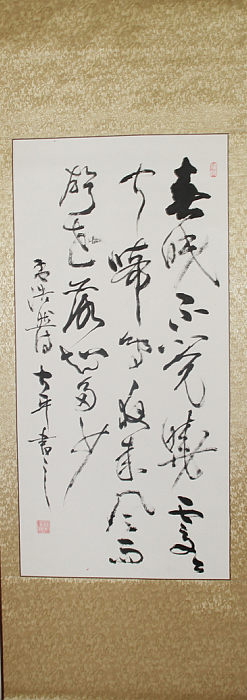 春眠不覺曉處々
聞啼鳥夜來風雨
聲花落知多少
孟浩然詩 書之